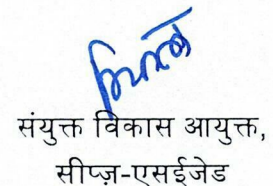 संयुक्त विकास आयुक्त,
सीप्ज़-एसईजेड